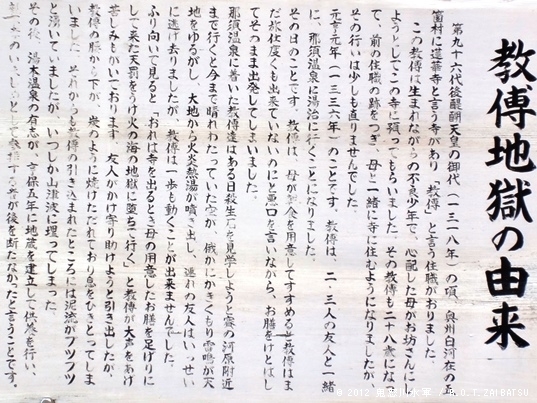 教傅地獄の由来
第九十六代後醍醐天皇の御代(一三一八年)の頃、奥州白河在の
箇村に蓮華寺と言う寺があり「教傅」と言う住職がおりました。
この教傅は生まれながらの不良少年で、心配した母がお坊さんに
ようやくてこの寺に張ってもらいました。その教傅も二十八歳になっ
て、前の住職の跡をつぎ、母と一緒に寺に住むようになりましたが
その行いは少しも直りませんでした。
元亨元年(一三三六年)のことです。教傅は、二・三人の友人と一緒
に、那須温泉に湯治に行くことになりました。
その日のことです。教傅は、母が朝食を用意してすすめると教傅はま
だ旅仕度くも出来ていないのにと悪口を言いながら、お膳をけとばし
てそのまま出発してしまいました。
那須温泉に着いた教傅達はある日殺生石を見学しようと賽の河原附近
まで行くと今まで晴れわたっていた空が、俄かにかきくもり雷鳴が天
地をゆるがし、大地から火炎熱湯が噴き出し、連れの友人はいっせい
に逃げ去りましたが、教傅は一歩も動くことが出来ませんでした。
ふり向いて見ると「おれは寺を出るとき母の用意したお膳を足げりに
して来た天罰をうけ火の海の地獄に堕ちて行く」と教傅が大声をあげ
苦しみもがいております。友人がかけ寄り助けようと引き出したが、
教傅の腰から下が、炭のように焼けただれており息をひきとってしま
いました。それからも教傅の引き込まれたところには泥流がブツブツ
と湧いていましたが、いつしか山津波に埋ってしまった。
その後、湯本温泉の有志が享保五年に地蔵を建立して供養を行い、
として参拝する者が後を断たなかったと言うことです。
© 2012
D.T. ZAIBATSU